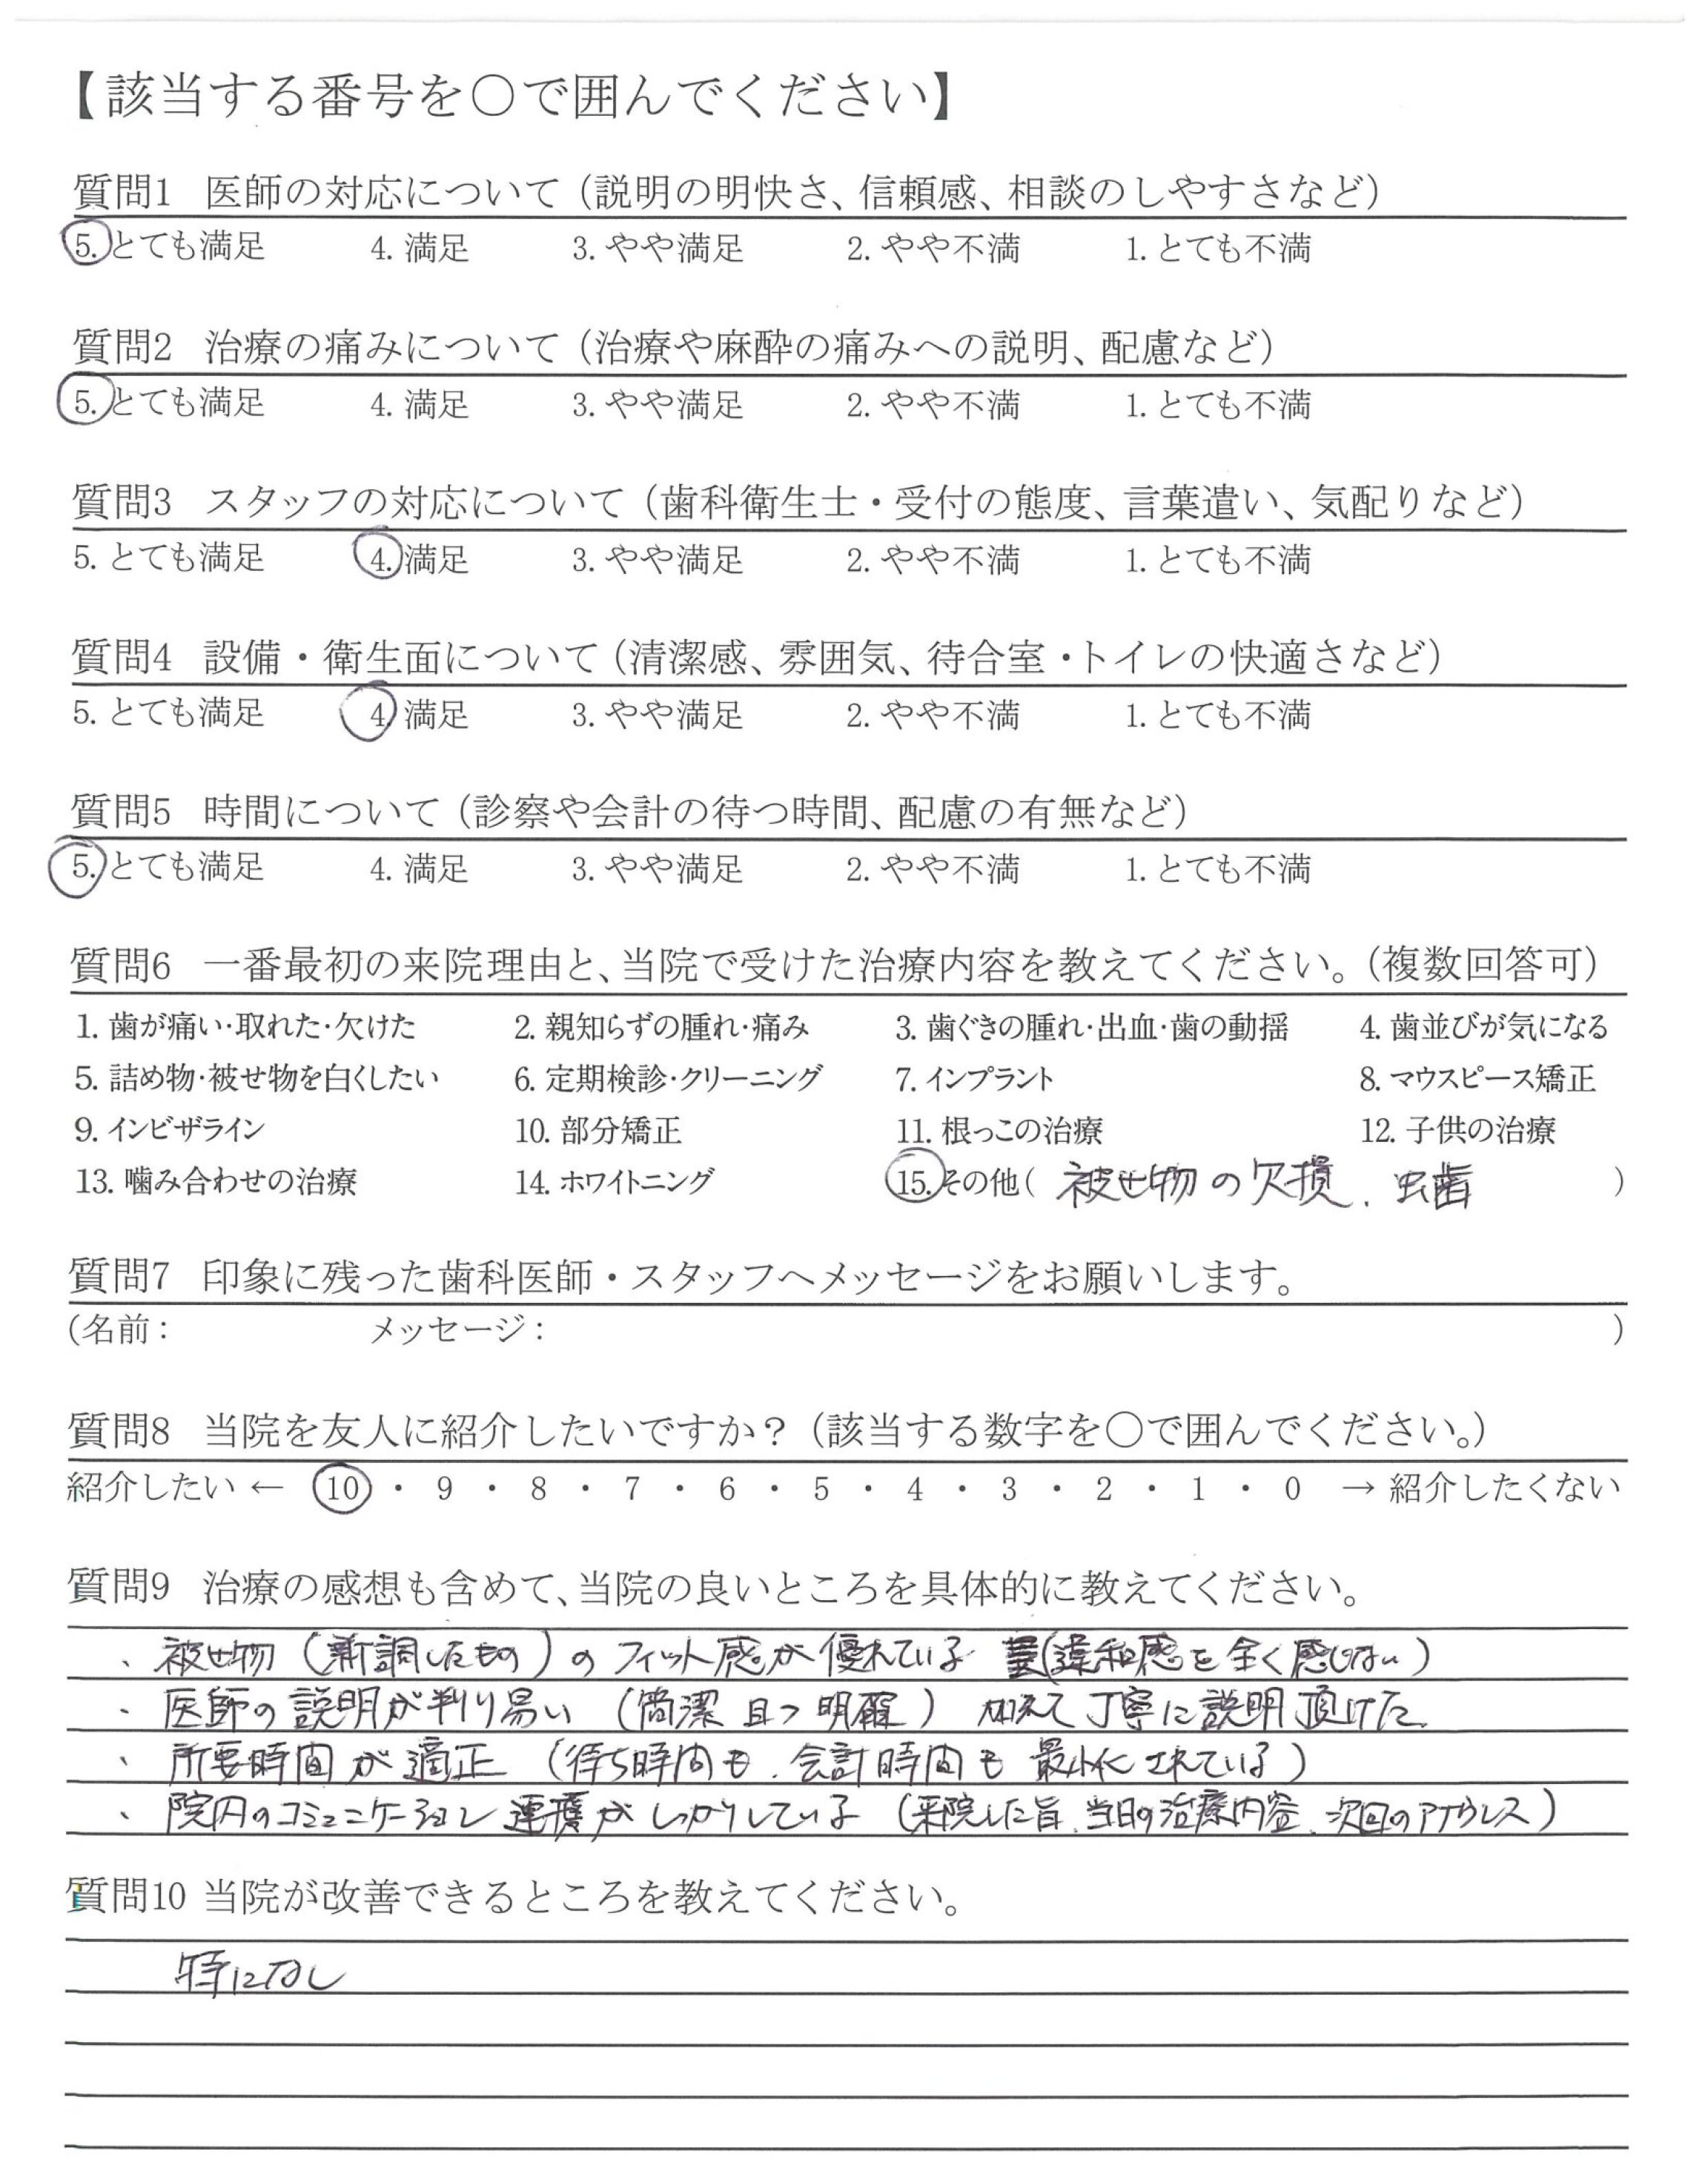 【該当する番号を○で囲んでください】
質問1 医師の対応について（説明の明快さ、信頼感、相談のしやすさなど）
5. とても満足 4. 満足 3. やや満足 2. やや不満 1. とても不満
質問2 治療の痛みについて（治療や麻酔の痛みへの説明、配慮など）
5. とても満足 4. 満足 3. やや満足 2. やや不満 1. とても不満
質問3 スタッフの対応について（歯科衛生士・受付の態度、言葉遣い、気配りなど）
5. とても満足 4. 満足 3. やや満足 2. やや不満 1. とても不満
質問4 設備・衛生面について（清潔感、雰囲気、待合室・トイレの快適さなど）
5. とても満足 4. 満足 3. やや満足 2. やや不満 1. とても不満
質問5 時間について（診察や会計の待つ時間、配慮の有無など）
5. とても満足 4. 満足 3. やや満足 2. やや不満 1. とても不満
質問6 一番最初の来院理由と、当院で受けた治療内容を教えてください。（複数回答可）
1. 歯が痛い・取れた・欠けた 2. 親知らずの腫れ・痛み 3. 歯ぐきの腫れ・出血・歯の動揺 4. 歯並びが気になる
5. 詰め物・被せ物を白くしたい 6. 定期検診・クリーニング 7. インプラント 8. マウスピース矯正
9. インビザライン 10. 部分矯正 11. 根っこの治療 12. 子供の治療
13. 噛み合わせの治療 14. ホワイトニング 15. その他（ 被せ物の欠損、虫歯 ）
質問7 印象に残った歯科医師・スタッフへメッセージをお願いします。
（名前： メッセージ： ）
質問8 当院を友人に紹介したいですか？（該当する数字を○で囲んでください。）
紹介したい ← 10 ・ 9 ・ 8 ・ 7 ・ 6 ・ 5 ・ 4 ・ 3 ・ 2 ・ 1 ・ 0 → 紹介したくない
質問9 治療の感想も含めて、当院の良いところを具体的に教えてください。
、被せ物（新調したもの）のフィット感が優れている（違和感を全く感じない）
、医師の説明が判り易い（簡潔且つ明確）加えて丁寧に説明頂けた
、所要時間が適正（待ち時間も、会計時間も最小化されている）
、院内のコミュニケーション連携がしっかりしている（来院した旨、当日の治療内容、次回のアナウンス）
質問10 当院が改善できるところを教えてください。
特になし